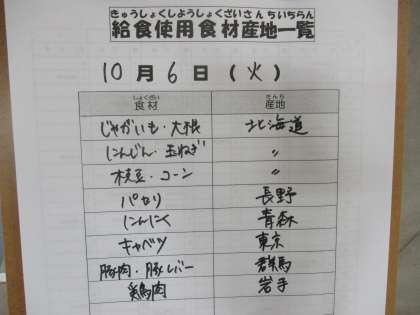 きゅうしょくしようしょくざいさんちいちらん
給食使用食材産地一覧
10月6日(火)
しょくざい さんち
食材 産地
じゃがいも・大根 北海道
にんじん・玉ねぎ 〃
枝豆・コーン 〃
パセリ 長野
にんにく 青森
キャベツ 東京
豚肉・豚レバー 群馬
鶏肉 岩手